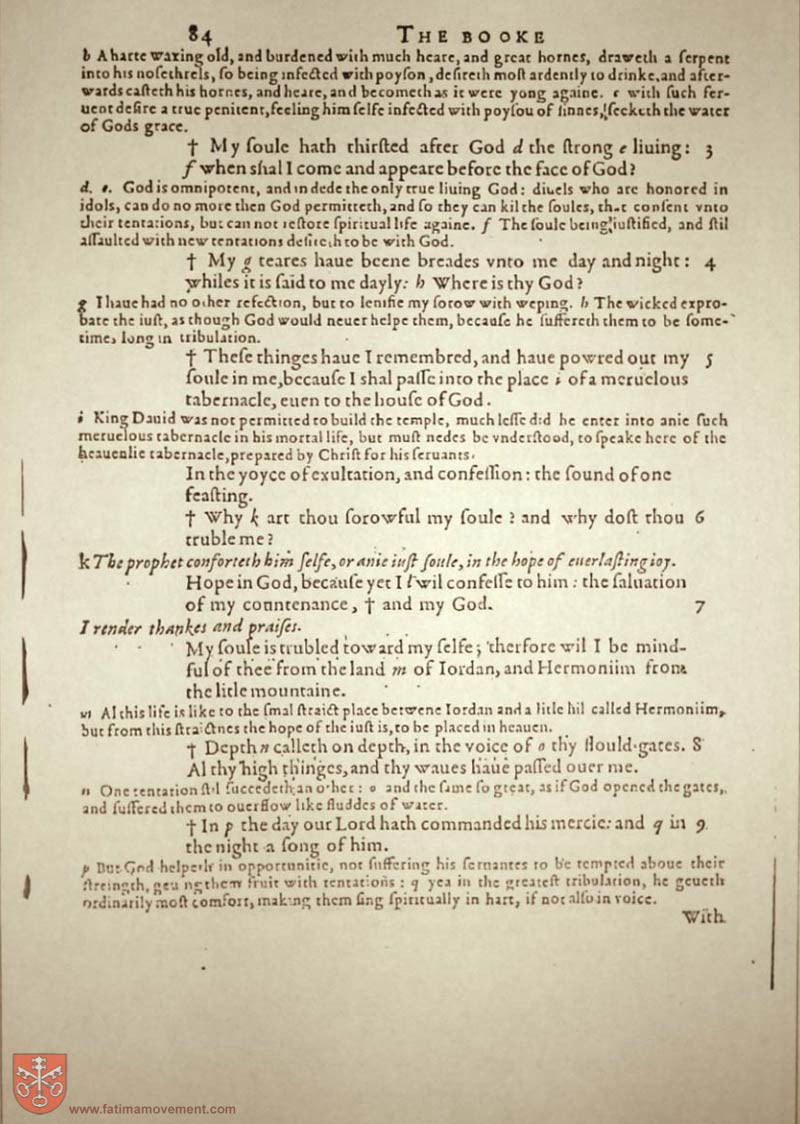 84 THE BOOKE
b A harte waxing old, and burdened with much heare, and great hornes, draweth a serpent
into his nosethrels, so being infected with poyson, desireth most ardently to drinke, and after-
wards casteth his hornes, and heare, and becometh as it were yong againe. c with such fer-
uent desire a true penitent, feeling him selfe infected with poysou of sinnes, seeketh the water
of Gods grace.
† My soule hath thirsted after God d the strong e liuing: 3
f when shal I come and appeare before the face of God?
d. e. God is omnipotent, and in dede the only true liuing God: diuels who are honored in
idols, can do no more then God permitteth, and so they can kil the soules, that consent vnto
their tentations, but can not restore spiritual life againe. f The soule being iustified, and stil
assaulted with new tentations desireth to be with God.
† My g teares haue beene breades vnto me day and night: 4
whiles it is said to me dayly: h Where is thy God?
g I haue had no other refection, but to lenifie my sorow with weping. h The wicked expro-
bate the iust, as though God would neuer helpe them, because he suffereth them to be some-
times long in tribulation.
† These thinges haue I remembred, and haue powred out my 5
soule in me, because I shal passe into the place i of a meruelous
tabernacle, euen to the house of God.
i King Dauid was not permitted to build the temple, much lesse did he enter into anie such
meruelous tabernacle in his mortal life, but must nedes be vnderstood, to speake here of the
heauenlie tabernacle, prepared by Christ for his seruants.
In the voyce of exultation, and confession: the sound of one
feasting.
† Why k art thou sorowful my soule? and why dost thou 6
truble me?
k The prophet conforteth him selfe, or anie iust soule, in the hope of euerlasting ioy.
Hope in God, because yet I l wil confesse to him: the saluation
of my conntenance, † and my God. 7
I render thankes and praises.
My soule is trubled toward my selfe; therfore wil I be mind-
ful of thee from the land m of Iordan, and Hermoniim from
the litle mountaine.
m Al this life is like to the smal straict place betwene Iordan and a litle hil called Hermoniim,
but from this straictnes the hope of the iust is, to be placed in heauen.
† Depth n calleth on depth, in the voice of o thy floud-gates. 8
Al thy high thinges, and thy waues haue passed ouer me.
n One tentation stil succedeth an other: o and the same so great, as if God opened the gates,
and suffered them to ouerflow like fluddes of water.
† In p the day our Lord hath commanded his mercie: and q in 9
the night a song of him.
p But God helpeth in opportunitie, not suffering his seruantes to be tempted aboue their
streingth, geuing them fruit with tentations: q yea in the greatest tribulation, he geueth
ordinarily most comfort, making them sing spiritually in hart, if not also in voice.
With
www.fatimamovement.com